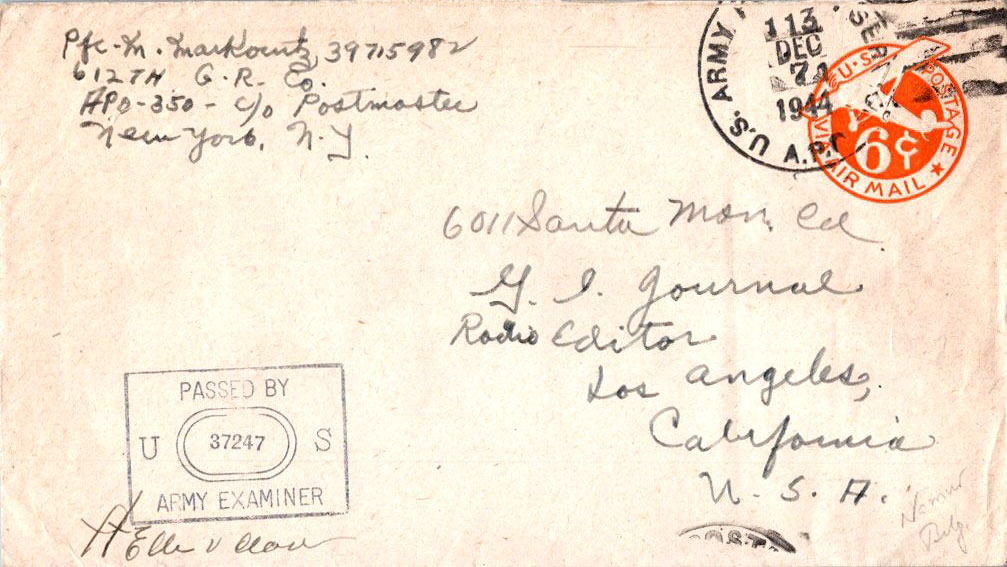 Pfc- M. Markowitz 39715982
612TH G. R. Co.
APO-350 - c/o Postmaster
New York, N.Y.
U.S. ARMY
113
DEC
7
1944
A.P.O.
U.S. POSTAGE
6¢
VIA AIR MAIL
6011 Santa Mon.
G. I. Journal
Radio Editor
Los Angeles,
California
U. S. A.
PASSED BY
U 37247 S
ARMY EXAMINER
Namur
Belg.